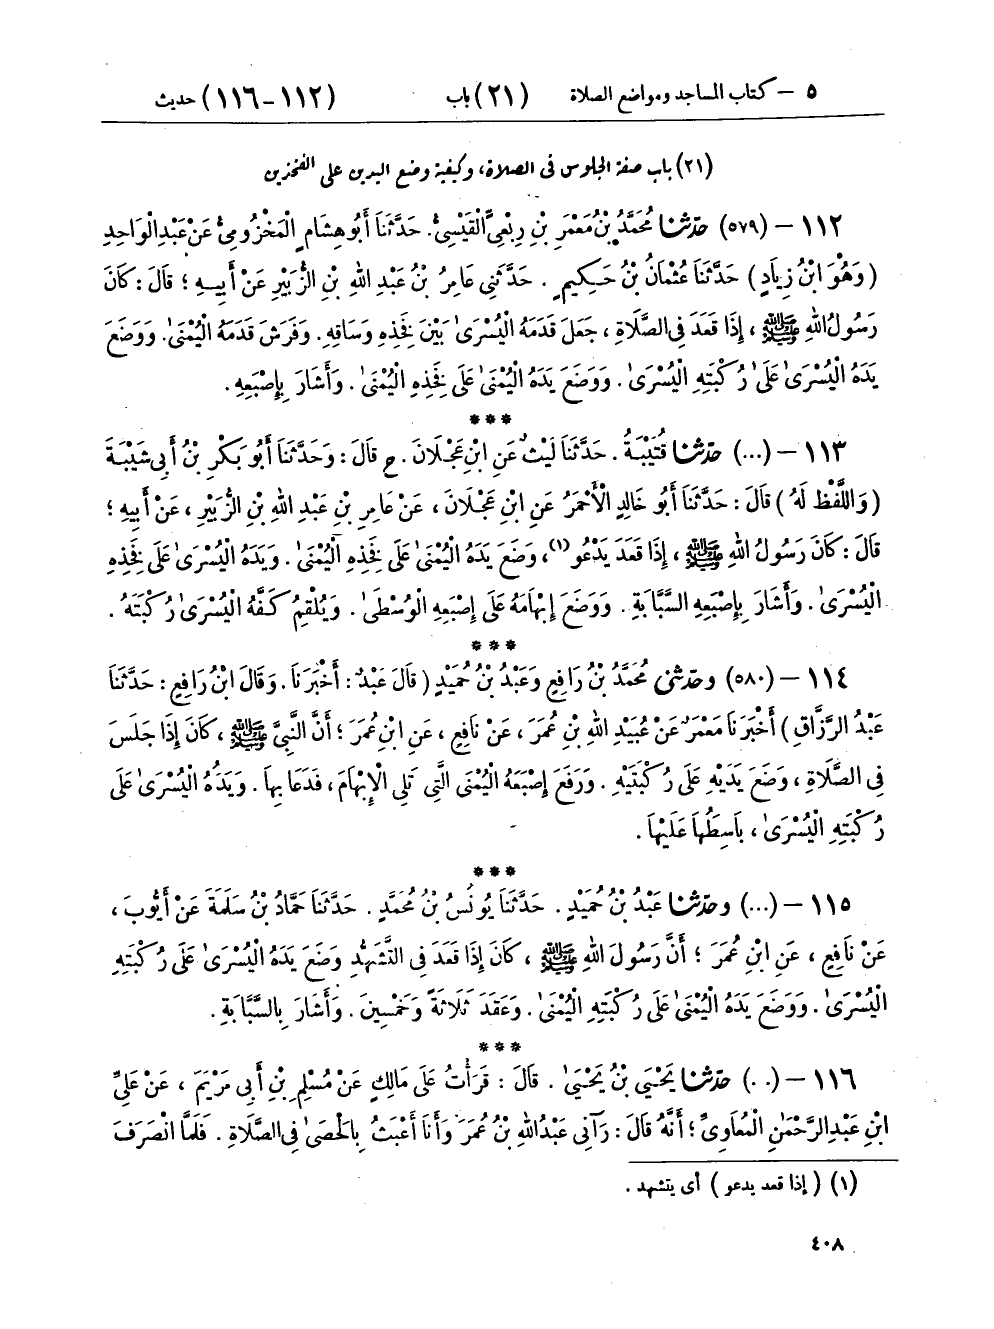 ٥ – كتاب المساجد ومواضع الصلاة (٢١) باب (١١٢-١١٦) حديث
(٢١) باب صفة الجلوس فى الصلاة، وكيفية وضع اليدين على الفخذين
١١٢ – (٥٧٩) حَدَّثَنَا مُحَمَّدُ بْنُ مَعْمَرِ بْنِ رِبْعِىٍّ الْقَيْسِىُّ. حَدَّثَنَا أَبُو هِشَامٍ الْمَخْزُومِىُّ عَنْ عَبْدِ الْوَاحِدِ
(وَهُوَ ابْنُ زِيَادٍ) حَدَّثَنَا عُثْمَانُ بْنُ حَكِيمٍ. حَدَّثَنِى عَامِرُ بْنُ عَبْدِ اللهِ بْنِ الزُّبَيْرِ عَنْ أَبِيهِ؛ قَالَ: كَانَ
رَسُولُ اللهِ ﷺ، إِذَا قَعَدَ فِى الصَّلَاةِ، جَعَلَ قَدَمَهُ الْيُسْرَىٰ بَيْنَ فَخِذِهِ وَسَاقِهِ. وَفَرَشَ قَدَمَهُ الْيُمْنَىٰ. وَوَضَعَ
يَدَهُ الْيُسْرَىٰ عَلَىٰ رُكْبَتِهِ الْيُسْرَىٰ. وَوَضَعَ يَدَهُ الْيُمْنَىٰ عَلَىٰ فَخِذِهِ الْيُمْنَىٰ. وَأَشَارَ بِإِصْبَعِهِ.
***
١١٣ – (...) حَدَّثَنَا قُتَيْبَةُ. حَدَّثَنَا لَيْثٌ عَنِ ابْنِ عَجْلَانَ. ح قَالَ: وَحَدَّثَنَا أَبُو بَكْرِ بْنُ أَبِى شَيْبَةَ
(وَاللَّفْظُ لَهُ) قَالَ: حَدَّثَنَا أَبُو خَالِدٍ الْأَحْمَرُ عَنِ ابْنِ عَجْلَانَ، عَنْ عَامِرِ بْنِ عَبْدِ اللهِ بْنِ الزُّبَيْرِ، عَنْ أَبِيهِ؛
قَالَ: كَانَ رَسُولُ اللهِ ﷺ، إِذَا قَعَدَ يَدْعُو(١)، وَضَعَ يَدَهُ الْيُمْنَىٰ عَلَىٰ فَخِذِهِ الْيُمْنَىٰ. وَيَدَهُ الْيُسْرَىٰ عَلَىٰ فَخِذِهِ
الْيُسْرَىٰ. وَأَشَارَ بِإِصْبَعِهِ السَّبَّابَةِ. وَوَضَعَ إِبْهَامَهُ عَلَىٰ إِصْبَعِهِ الْوُسْطَىٰ. وَيُلْقِمُ كَفَّهُ الْيُسْرَىٰ رُكْبَتَهُ.
***
١١٤ – (٥٨٠) وحَدَّثَنِى مُحَمَّدُ بْنُ رَافِعٍ وَعَبْدُ بْنُ حُمَيْدٍ (قَالَ عَبْدٌ: أَخْبَرَنَا. وَقَالَ ابْنُ رَافِعٍ: حَدَّثَنَا
عَبْدُ الرَّزَّاقِ) أَخْبَرَنَا مَعْمَرٌ عَنْ عُبَيْدِ اللهِ بْنِ عُمَرَ، عَنْ نَافِعٍ، عَنِ ابْنِ عُمَرَ؛ أَنَّ النَّبِىَّ ﷺ، كَانَ إِذَا جَلَسَ
فِى الصَّلَاةِ، وَضَعَ يَدَيْهِ عَلَىٰ رُكْبَتَيْهِ. وَرَفَعَ إِصْبَعَهُ الْيُمْنَى الَّتِى تَلِى الْإِبْهَامَ، فَدَعَا بِهَا. وَيَدَهُ الْيُسْرَىٰ عَلَىٰ
رُكْبَتِهِ الْيُسْرَىٰ، بَاسِطَهَا عَلَيْهَا.
***
١١٥ – (...) وحَدَّثَنَا عَبْدُ بْنُ حُمَيْدٍ. حَدَّثَنَا يُونُسُ بْنُ مُحَمَّدٍ. حَدَّثَنَا حَمَّادُ بْنُ سَلَمَةَ عَنْ أَيُّوبَ،
عَنْ نَافِعٍ، عَنِ ابْنِ عُمَرَ؛ أَنَّ رَسُولَ اللهِ ﷺ، كَانَ إِذَا قَعَدَ فِى التَّشَهُّدِ وَضَعَ يَدَهُ الْيُسْرَىٰ عَلَىٰ رُكْبَتِهِ
الْيُسْرَىٰ. وَوَضَعَ يَدَهُ الْيُمْنَىٰ عَلَىٰ رُكْبَتِهِ الْيُمْنَىٰ. وَعَقَدَ ثَلَاثَةً وَخَمْسِينَ. وَأَشَارَ بِالسَّبَّابَةِ.
***
١١٦ – (..) حَدَّثَنَا يَحْيَىٰ بْنُ يَحْيَىٰ. قَالَ: قَرَأْتُ عَلَىٰ مَالِكٍ عَنْ مُسْلِمِ بْنِ أَبِى مَرْيَمَ، عَنْ عَلِىِّ
ابْنِ عَبْدِ الرَّحْمَٰنِ الْمُعَاوِىِّ؛ أَنَّهُ قَالَ: رَآنِى عَبْدُ اللهِ بْنُ عُمَرَ وَأَنَا أَعْبَثُ بِالْحَصَىٰ فِى الصَّلَاةِ. فَلَمَّا انْصَرَفَ
(١) (إذا قعد يدعو) أى يتشهد.
٤٠٨